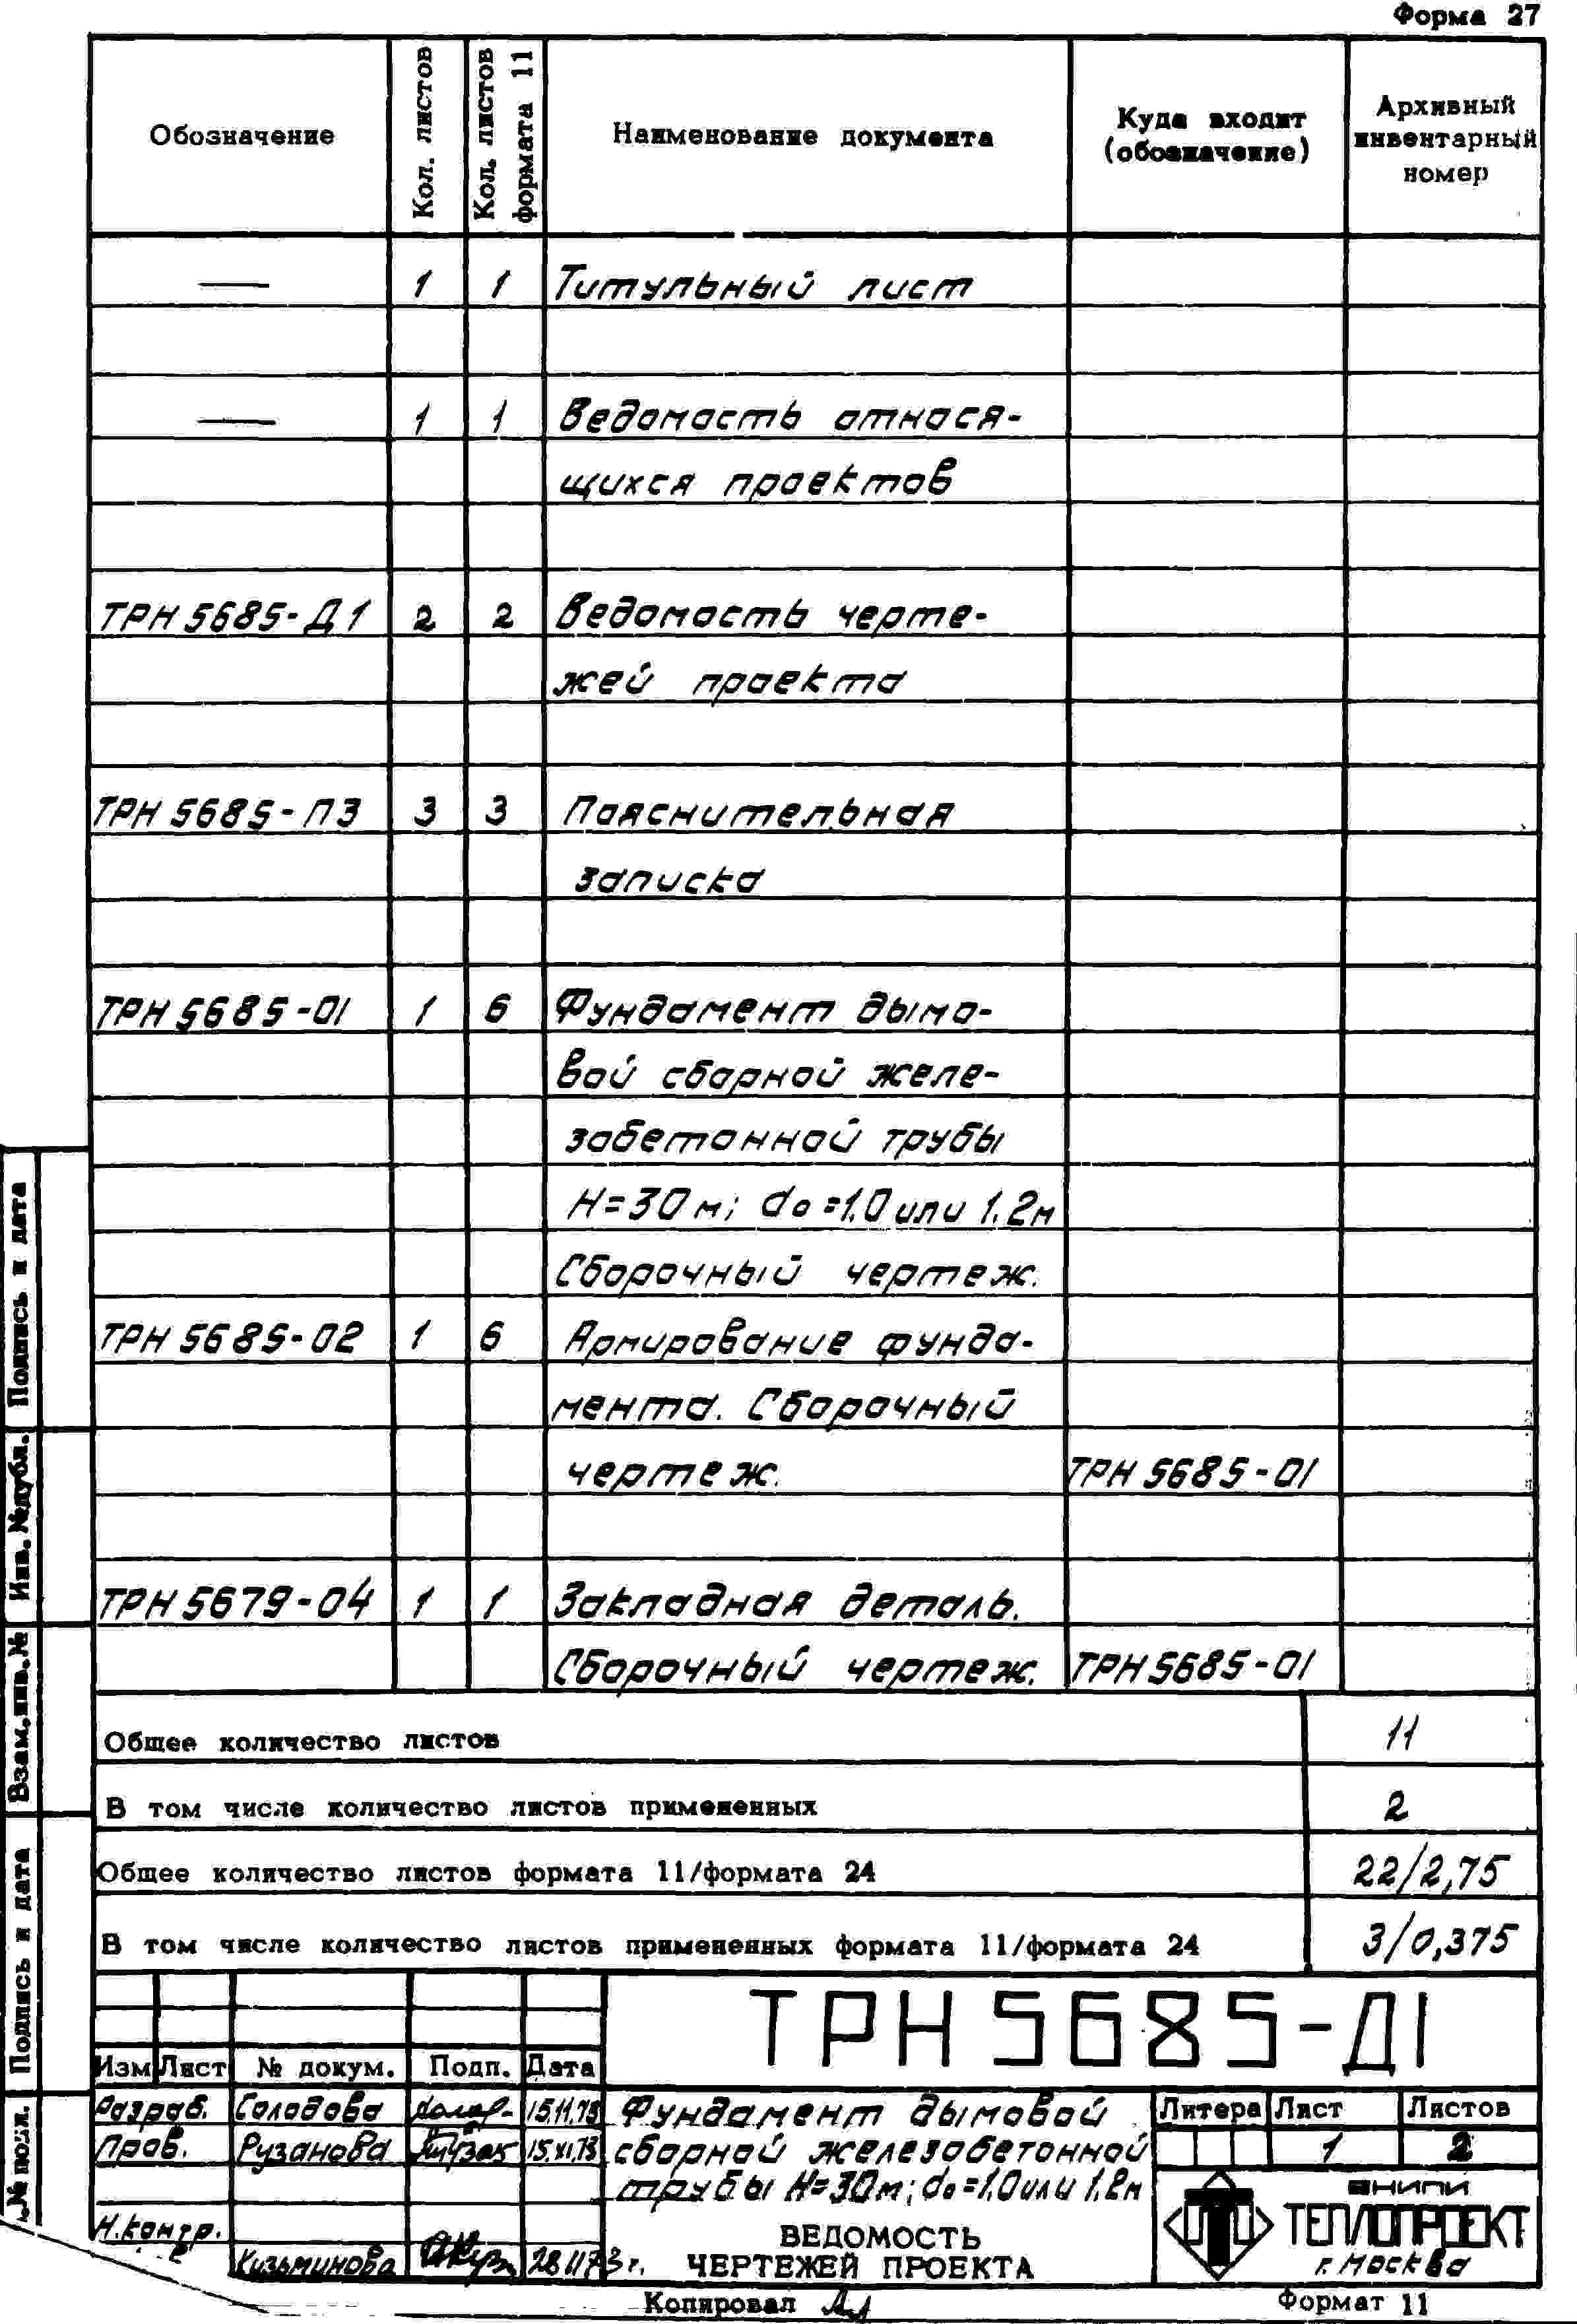 Форма 27
Обозначение
Кол. листов
Кол. листов
формата 11
Наименование документа
Куда входит
(обозначение)
Архивный
инвентарный
номер
— 1 1 Титульный лист
— 1 1 Ведомость относя-
щихся проектов
ТРН 5685-Д1 2 2 Ведомость черте-
жей проекта
ТРН 5685-ПЗ 3 3 Пояснительная
записка
ТРН 5685-01 1 6 Фундамент дымо-
вой сборной желе-
зобетонной трубы
Н=30м; dо=1.0 или 1.2м
Сборочный чертеж.
ТРН 5685-02 1 6 Армирование фунда-
мента. Сборочный
чертеж. ТРН 5685-01
ТРН 5679-04 1 1 Закладная деталь.
Сборочный чертеж. ТРН 5685-01
Общее количество листов 11
В том числе количество листов примененных 2
Общее количество листов формата 11/формата 24 22/2,75
В том числе количество листов примененных формата 11/формата 24 3/0,375
Подпись и дата
Инв. №дубл.
Взам.инв.№
Подпись и дата
№ подл.
ТРН 5685-Д1
Изм Лист № докум. Подп. Дата
Разраб. Солодова 15.11.73
Пров. Рузанова 15.XI.73
Н.контр.
Кузьминова 28.11.73г.
Фундамент дымовой
сборной железобетонной
трубы Н=30м; dо=1,0 или 1.2м
ВЕДОМОСТЬ
ЧЕРТЕЖЕЙ ПРОЕКТА
Литера Лист Листов
1 2
ВНИПИ
ТЕПЛОПРОЕКТ
г. Москва
Копировал
Формат 11